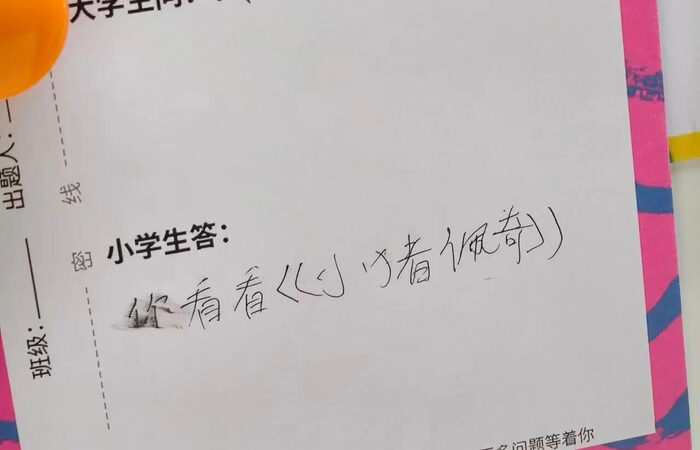 大学生问：
小学生答：
你看看《小猪佩奇》
出题人：
班级：
线
密
问题等着你